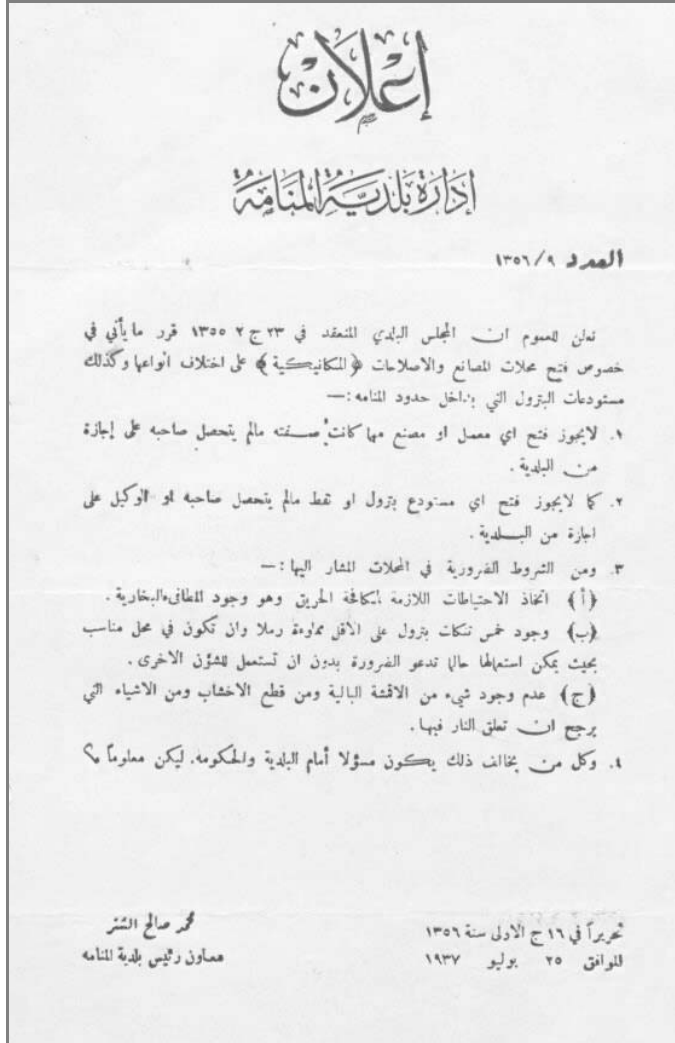 إعلان
إدارة بلدية المنامة
العدد ١٣٥٦/٩
نعلن للعموم ان المجلس البلدي المنعقد في ٢٣ ج ٢ ١٣٥٥ قرر ما يأتي في
خصوص فتح محلات المصانع والاصلاحات ﴿المكانيكية﴾ على اختلاف انواعها وكذلك
مستودعات البترول التي بداخل حدود المنامه :—
١. لايجوز فتح اي معمل او مصنع مهما كانت صفته مالم يتحصل صاحبه على إجازة
من البلدية .
٢. كما لايجوز فتح اي مستودع بترول او نفط مالم يتحصل صاحبه او الوكيل على
اجازة من البلدية .
٣. ومن الشروط الضرورية في المحلات المشار اليها :—
﴿أ﴾ اتخاذ الاحتياطات اللازمة لمكافحة الحريق وهو وجود المطافىء البخارية .
﴿ب﴾ وجود خمس تنكات بترول على الاقل مملوءة رملا وان تكون في محل مناسب
بحيث يمكن استعمالها حالما تدعو الضرورة بدون ان تستعمل للشؤن الاخرى .
﴿ج﴾ عدم وجود شيء من الاقمشة البالية ومن قطع الاخشاب ومن الاشياء التي
يرجح ان تعلق النار فيها .
٤. وكل من يخالف ذلك يكون مسؤلا أمام البلدية والحكومه. ليكن معلوماً
تحريراً في ١٦ ج الاولى سنة ١٣٥٦
للموافق ٢٥ يوليو ١٩٣٧
محمد صالح الشتر
معاون رئيس بلدية المنامه